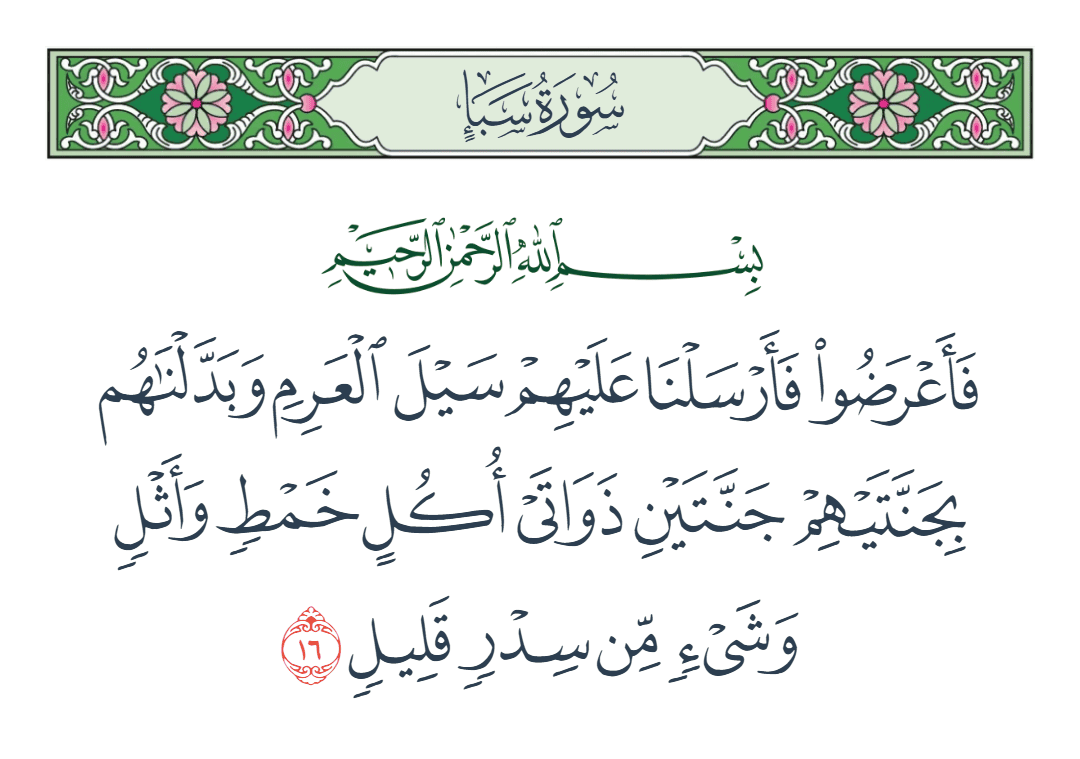 سُورَةُ سَبَإٍ
بِسْمِ ٱللَّهِ ٱلرَّحْمَٰنِ ٱلرَّحِيمِ
فَأَعْرَضُوا۟ فَأَرْسَلْنَا عَلَيْهِمْ سَيْلَ ٱلْعَرِمِ وَبَدَّلْنَٰهُم
بِجَنَّتَيْهِمْ جَنَّتَيْنِ ذَوَاتَىْ أُكُلٍ خَمْطٍ وَأَثْلٍ
وَشَىْءٍ مِّن سِدْرٍ قَلِيلٍ ١٦